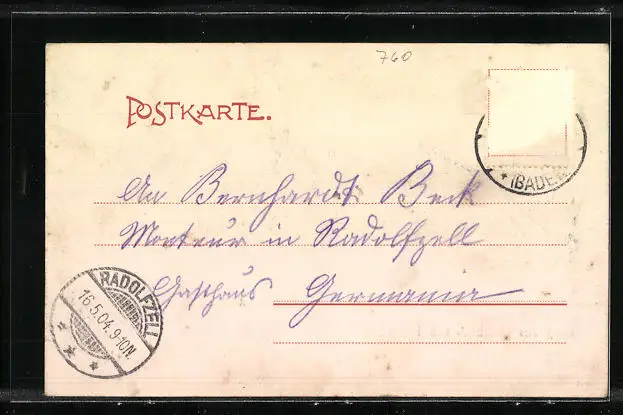 760
POSTKARTE.
(BADE
An Bernhardt Beck
Monteur in Radolfzell
Gasthaus Germania
RADOLFZELL
16.5.04.9-10N.